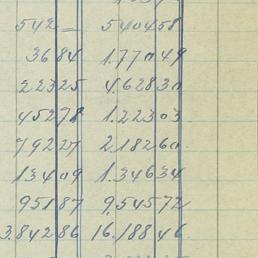 542 = 5404 58
36 84 1.770 49
223 25 4.628 30
452 78 1.223 03
792 27 2.182 60
134 09 1.346 34
951 87 9.545 72
3.842 86 16.188 46